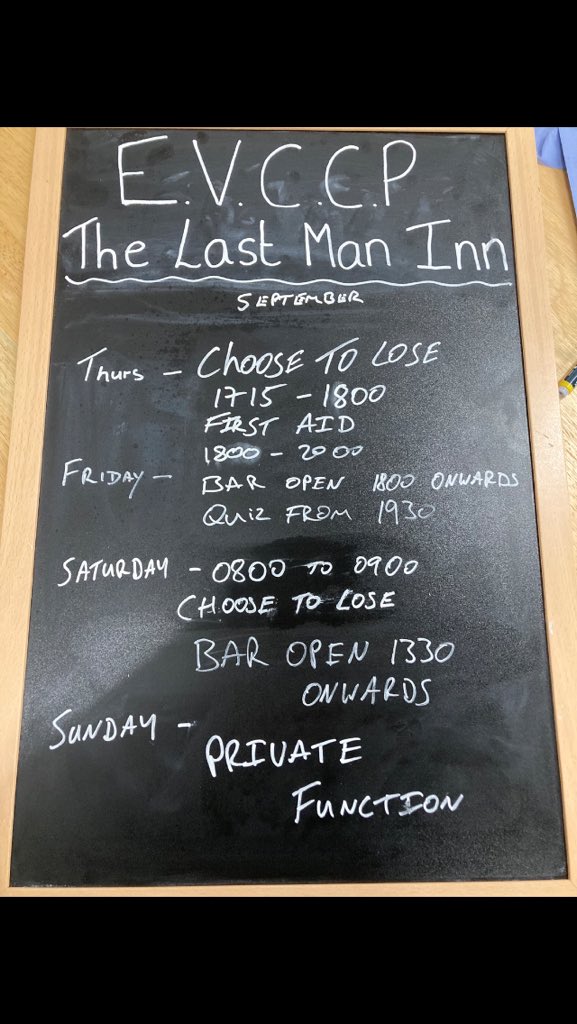 E.V.C.C.P
The Last Man Inn
SEPTEMBER
Thurs - CHOOSE TO LOSE
1715 - 1800
FIRST AID
1800 - 2000
FRIDAY - BAR OPEN 1800 ONWARDS
QUIZ FROM 1930
SATURDAY - 0800 TO 0900
CHOOSE TO LOSE
BAR OPEN 1330
ONWARDS
SUNDAY - PRIVATE
FUNCTION